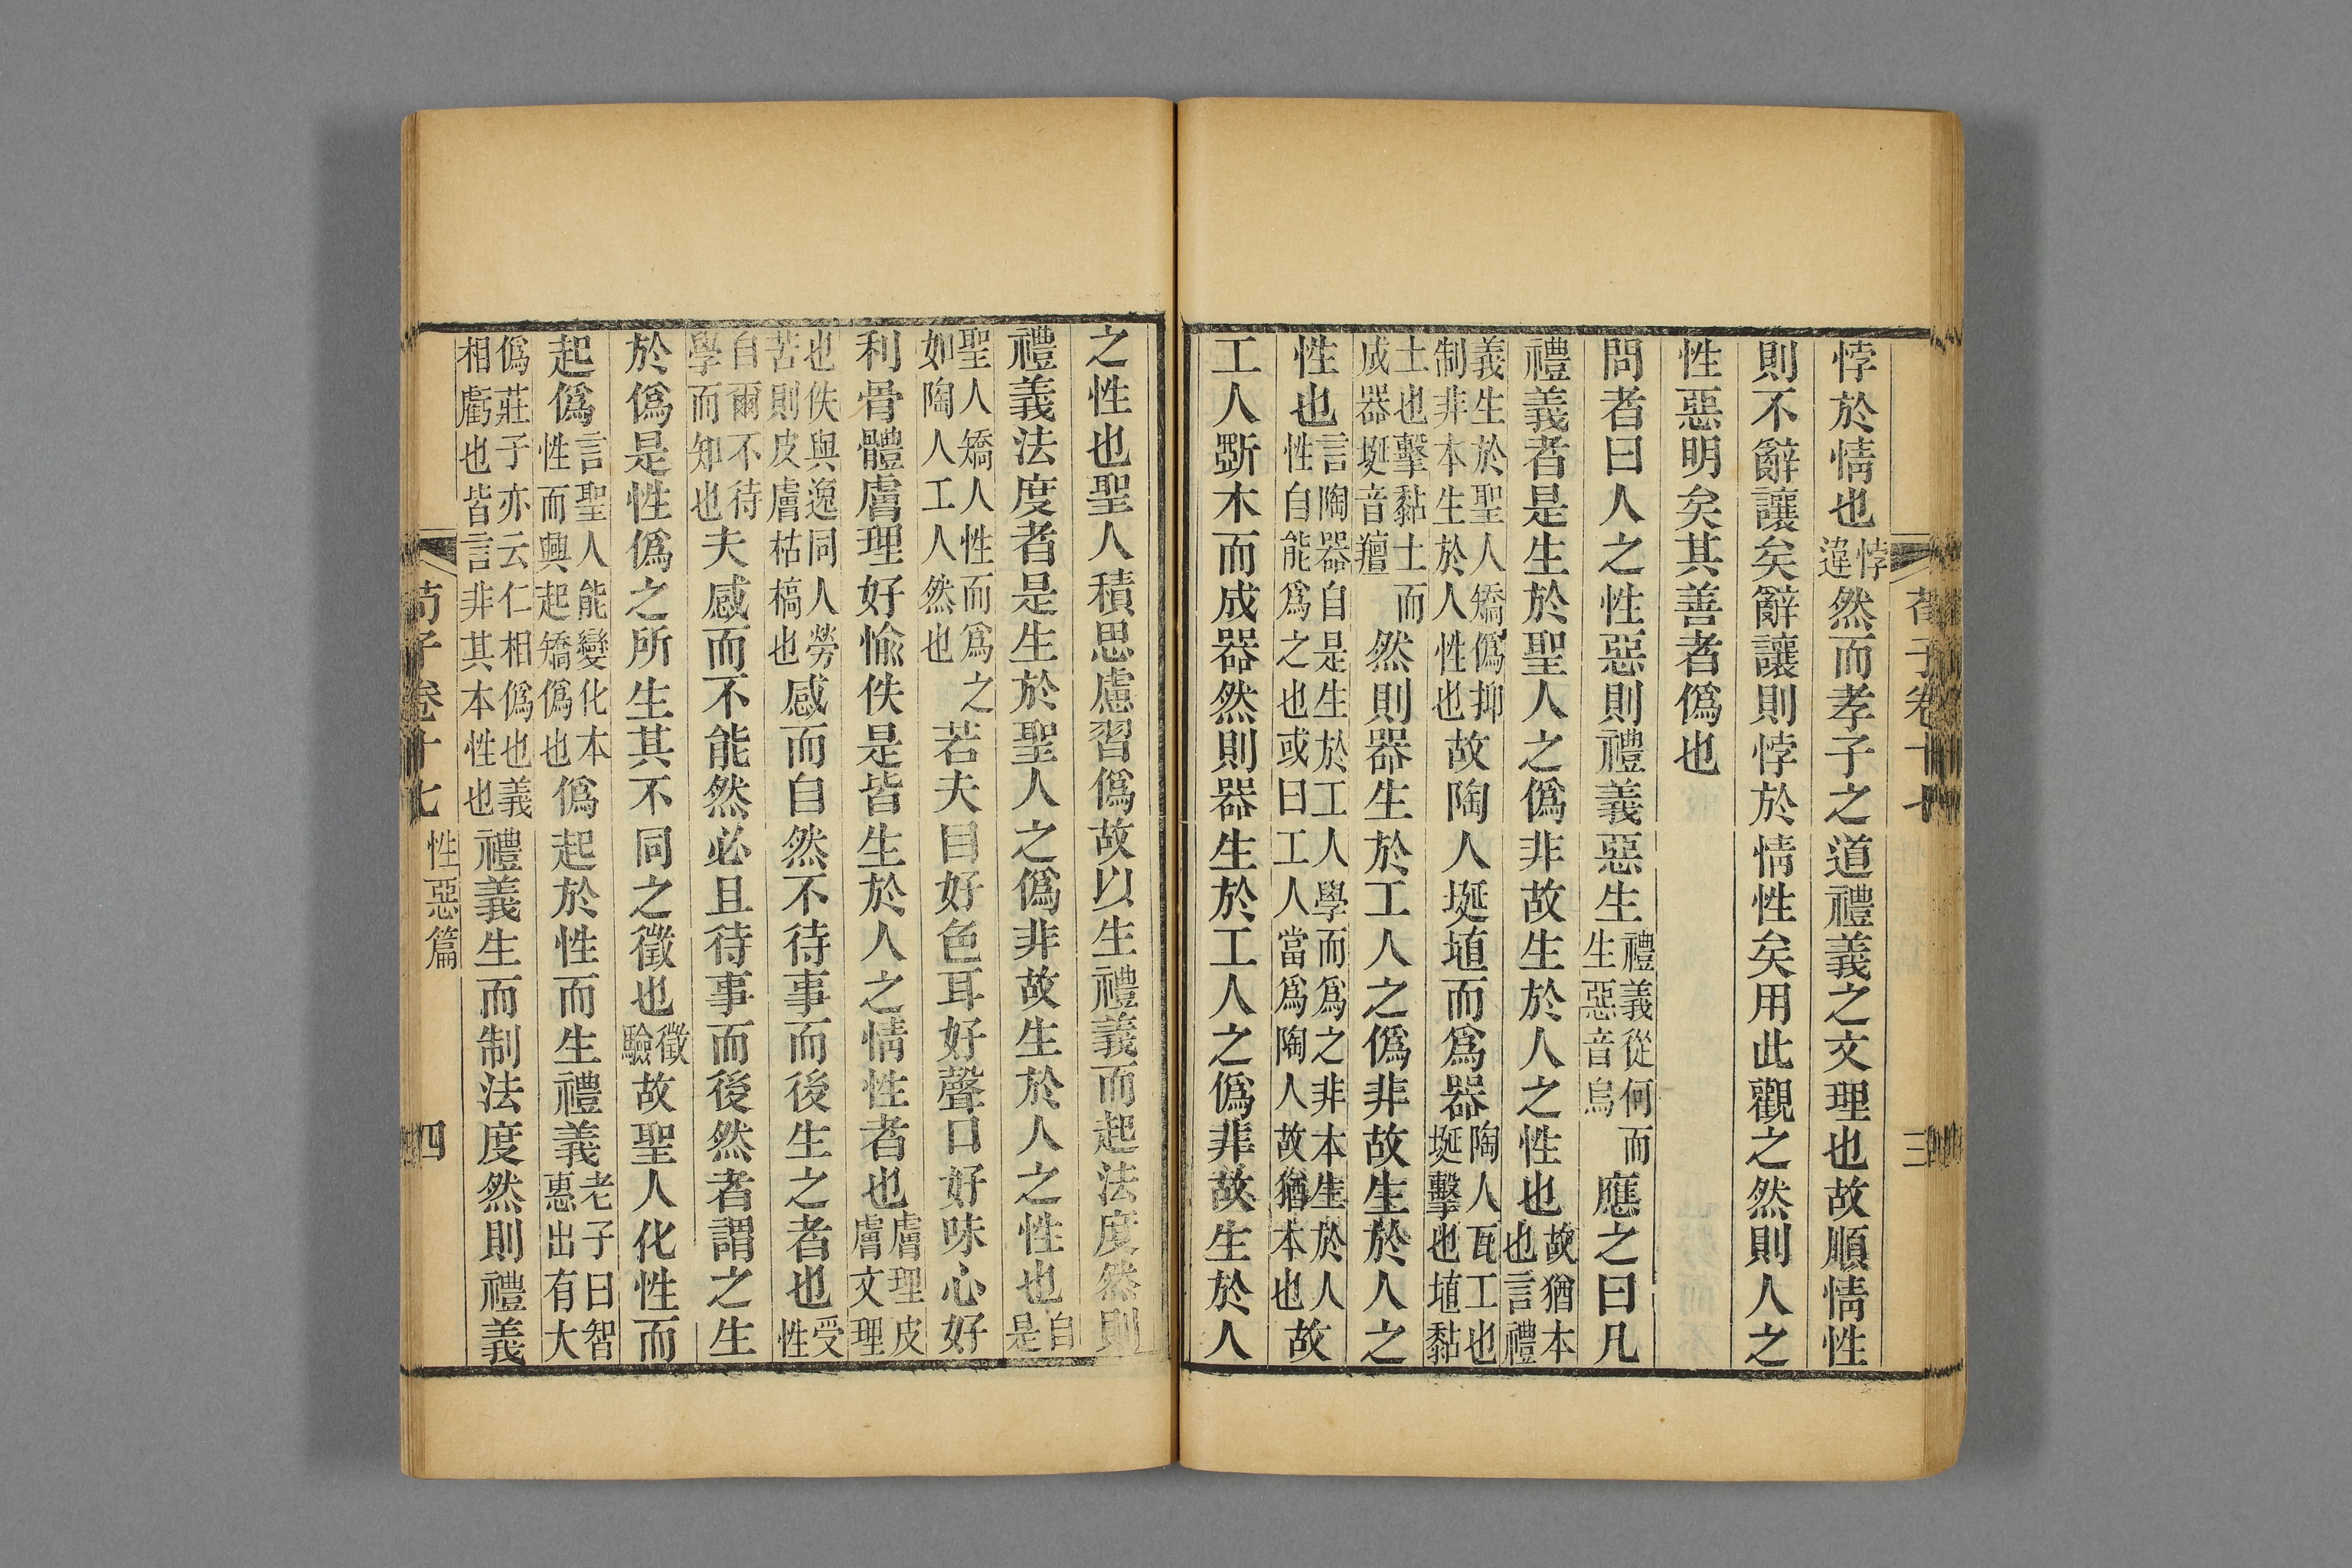 荀子卷十七 三
悖於情也悖違然而孝子之道禮義之文理也故順情性
則不辭讓矣辭讓則悖於情性矣用此觀之然則人之
性惡明矣其善者僞也
問者曰人之性惡則禮義惡生禮義從何而生惡音烏應之曰凡
禮義者是生於聖人之僞非故生於人之性也故猶本也言禮
義生於聖人矯僞抑制非本生於人性也故陶人埏埴而爲器陶人瓦工也埏擊也埴黏
土也擊黏土而成器埏音羶然則器生於工人之僞非故生於人之
性也言陶器自是生於工人學而爲之非本生於人性自能爲之也或曰工人當爲陶人故猶本也故
工人斲木而成器然則器生於工人之僞非故生於人
之性也聖人積思慮習僞故以生禮義而起法度然則
禮義法度者是生於聖人之僞非故生於人之性也自是
聖人矯人性而爲之如陶人工人然也若夫目好色耳好聲口好味心好
利骨體膚理好愉佚是皆生於人之情性者也膚理皮膚文理
也佚與逸同人勞苦則皮膚枯槁也感而自然不待事而後生之者也受性
自爾不待學而知也夫感而不能然必且待事而後然者謂之生
於僞是性僞之所生其不同之徵也徵驗故聖人化性而
起僞言聖人能變化本性而興起矯僞也僞起於性而生禮義老子曰智惠出有大
僞莊子亦云仁相僞也義相虧也皆言非其本性也禮義生而制法度然則禮義
荀子卷十七 性惡篇 四